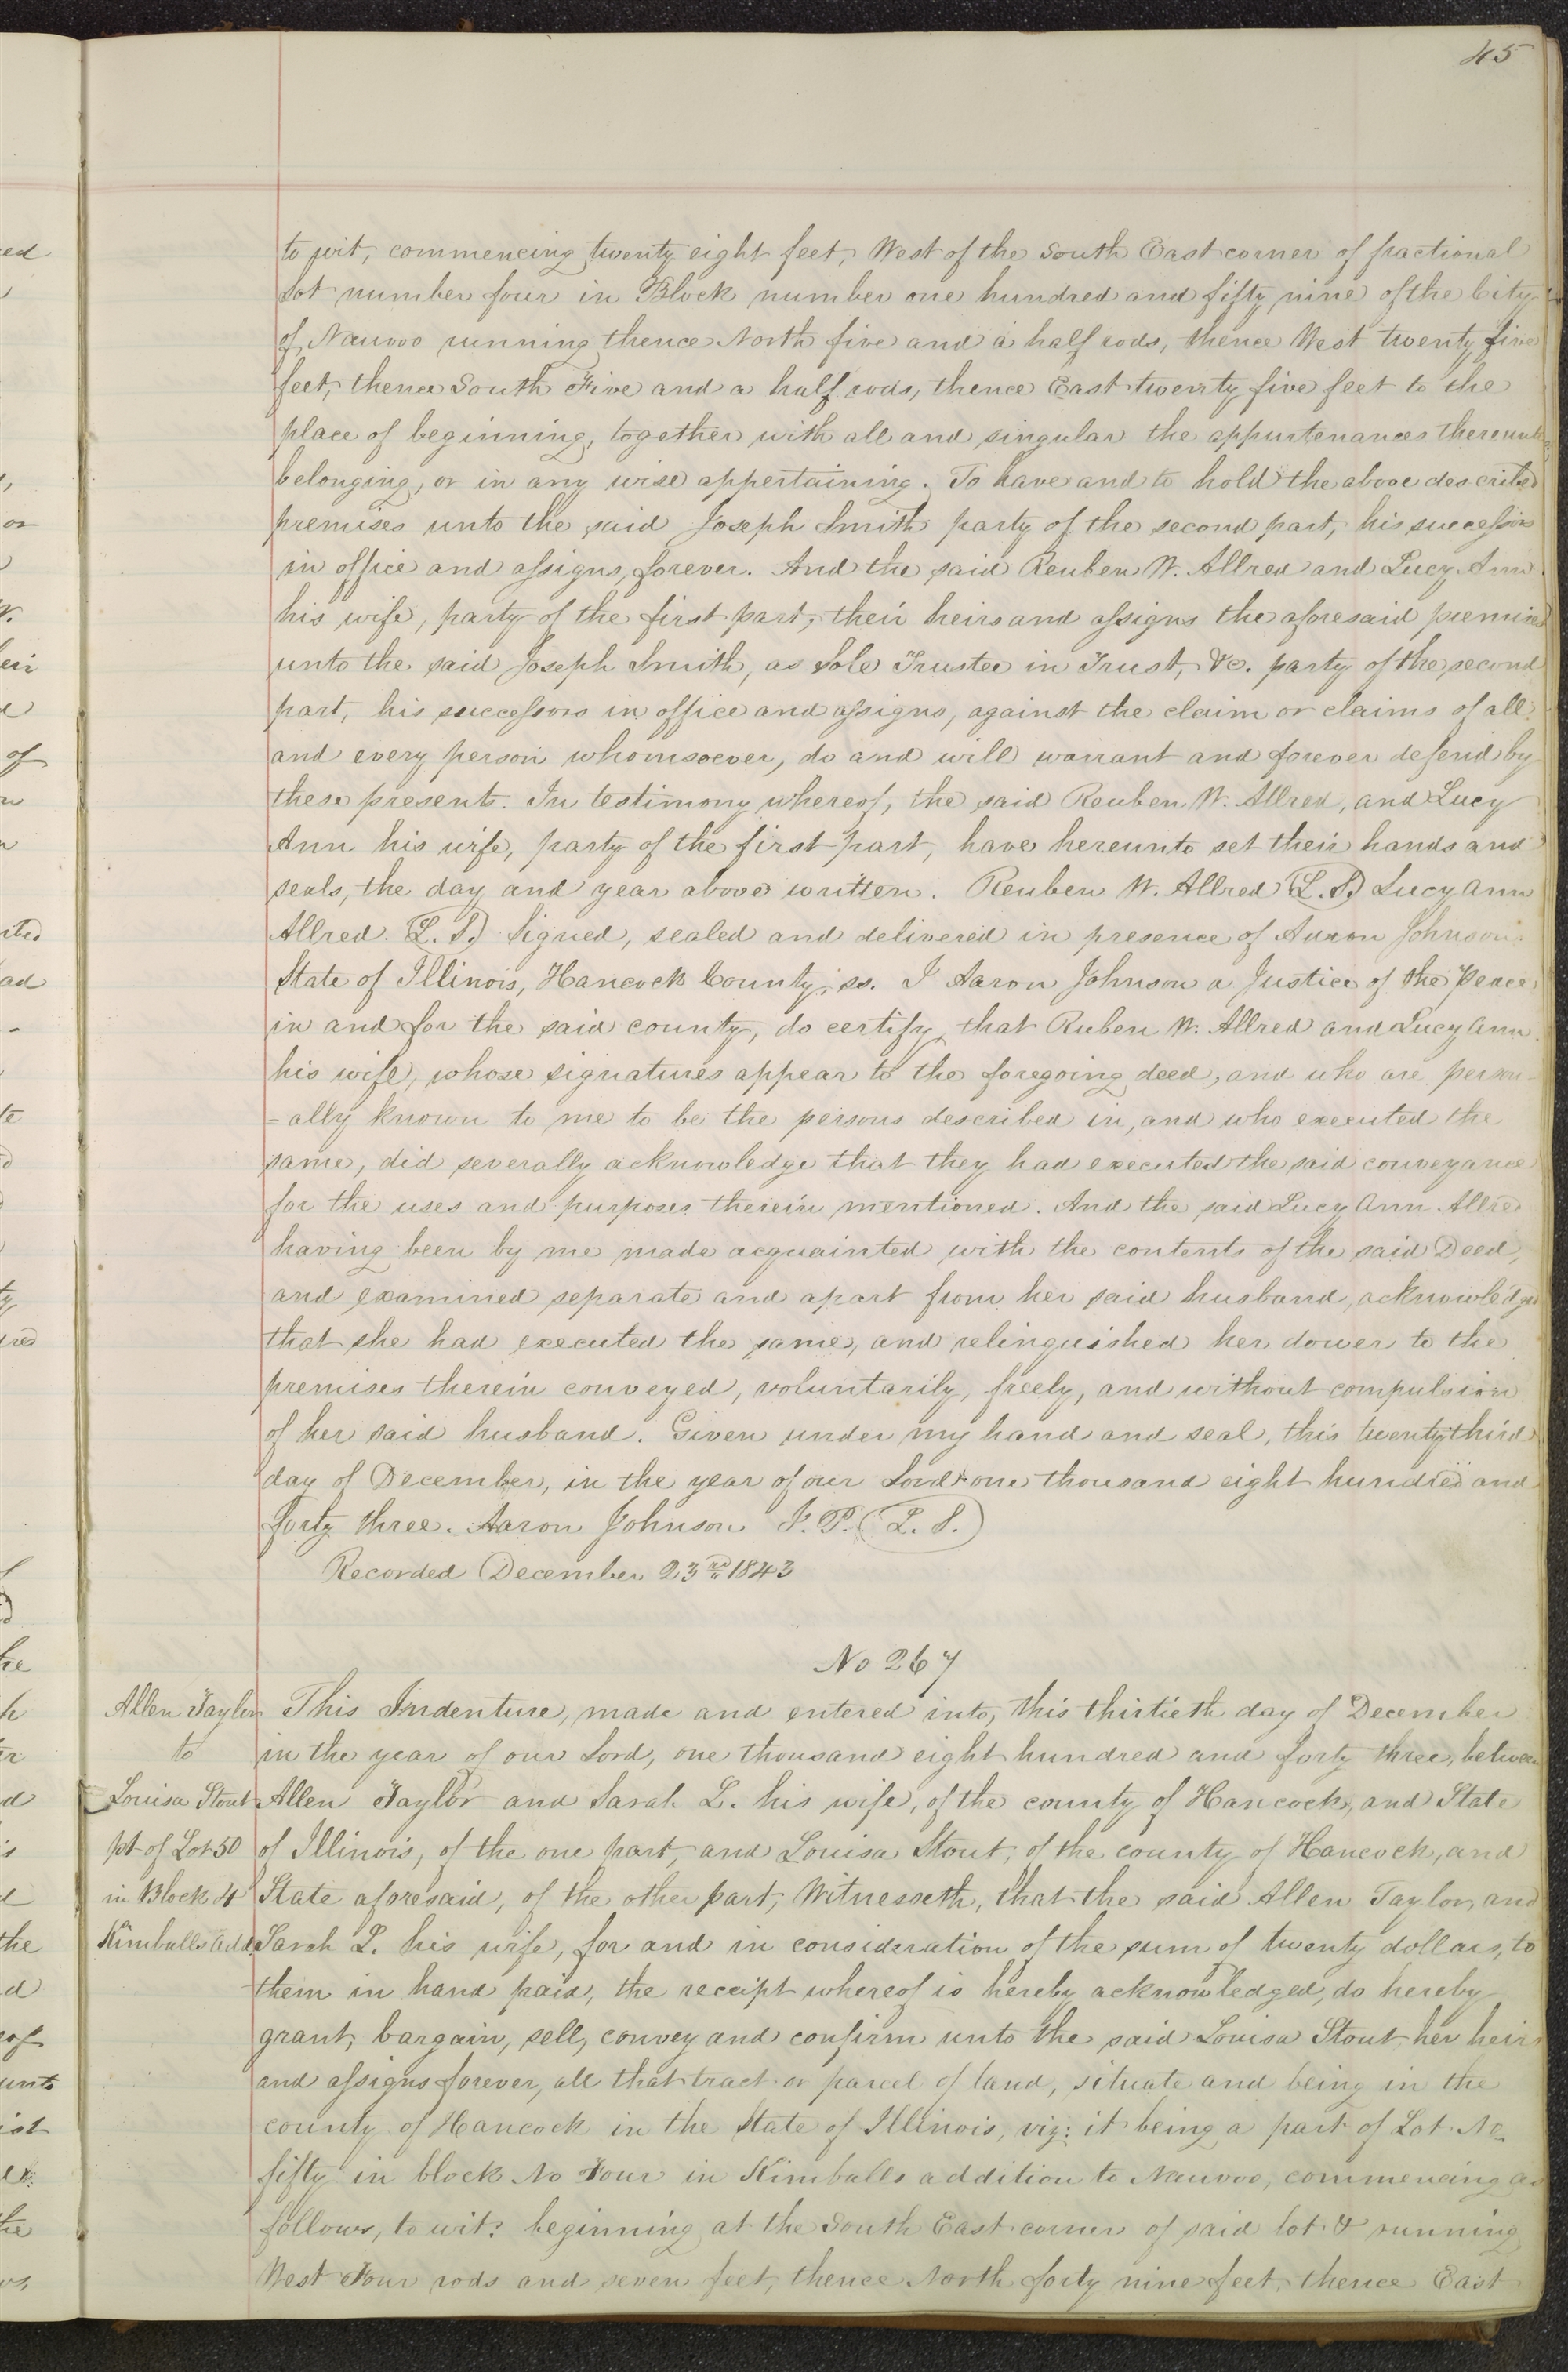 45
to wit, commencing twenty eight feet, West of the South East corner of fractional
Lot number four in Block number one hundred and fifty nine of the City
of Nauvoo running thence North five and a half rods, thence West twenty five
feet, thence South Five and a half rods, thence East twenty five feet to the
place of beginning, together with all and singular the appurtenances thereunto
belonging, or in any wise appertaining. To have and to hold the above described
premises unto the said Joseph Smith party of the second part, his successors
in office and assigns, forever. And the said Reuben W. Allred and Lucy Ann
his wife, party of the first part, their heirs and assigns the aforesaid premises
unto the said Joseph Smith, as Sole Trustee in Trust, &c. party of the second
part, his successors in office and assigns, against the claim or claims of all
and every person whomsoever, do and will warrant and forever defend by
these presents. In testimony whereof, the said Reuben W. Allred, and Lucy
Ann his wife, party of the first part, have hereunto set their hands and
seals, the day and year above written. Reuben W. Allred (L. S.) Lucy Ann
Allred. (L. S.) Signed, sealed and delivered in presence of Aaron Johnson.
State of Illinois, Hancock County, ss. I Aaron Johnson a Justice of the Peace
in and for the said county, do certify, that Ruben W. Allred and Lucy Ann
his wife, whose signatures appear to the foregoing deed, and who are person-
=ally known to me to be the persons described in, and who executed the
same, did severally acknowledge that they had executed the said conveyance
for the uses and purposes therein mentioned. And the said Lucy Ann Allred
having been by me made acquainted with the contents of the said Deed,
and examined separate and apart from her said husband, acknowledged
that she had executed the same, and relinquished her dower to the
premises therein conveyed, voluntarily, freely, and without compulsion
of her said husband. Given under my hand and seal, this twenty third
day of December, in the year of our Lord one thousand eight hundred and
forty three. Aaron Johnson J. P. (L. S.)
Recorded December 23rd 1843
No 267
Allen Taylor
to
Louisa Stout
pt of Lot 50
in Block 4
Kimballs Add.
This Indenture, made and entered into, this thirtieth day of December
in the year of our Lord, one thousand eight hundred and forty three, between
Allen Taylor and Sarah L. his wife, of the county of Hancock, and State
of Illinois, of the one part, and Louisa Stout, of the county of Hancock, and
State aforesaid, of the other part, Witnesseth, that the said Allen Taylor, and
Sarah L. his wife, for and in consideration of the sum of twenty dollars, to
them in hand paid, the receipt whereof is hereby acknowledged, do hereby
grant, bargain, sell, convey and confirm unto the said Louisa Stout, her heirs
and assigns forever, all that tract or parcel of land, situate and being in the
county of Hancock in the State of Illinois, viz: it being a part of Lot No
fifty in block No Four in Kimballs addition to Nauvoo, commencing as
follows, to wit: beginning at the South East corner of said lot & running
West Four rods and seven feet, thence North forty nine feet, thence East